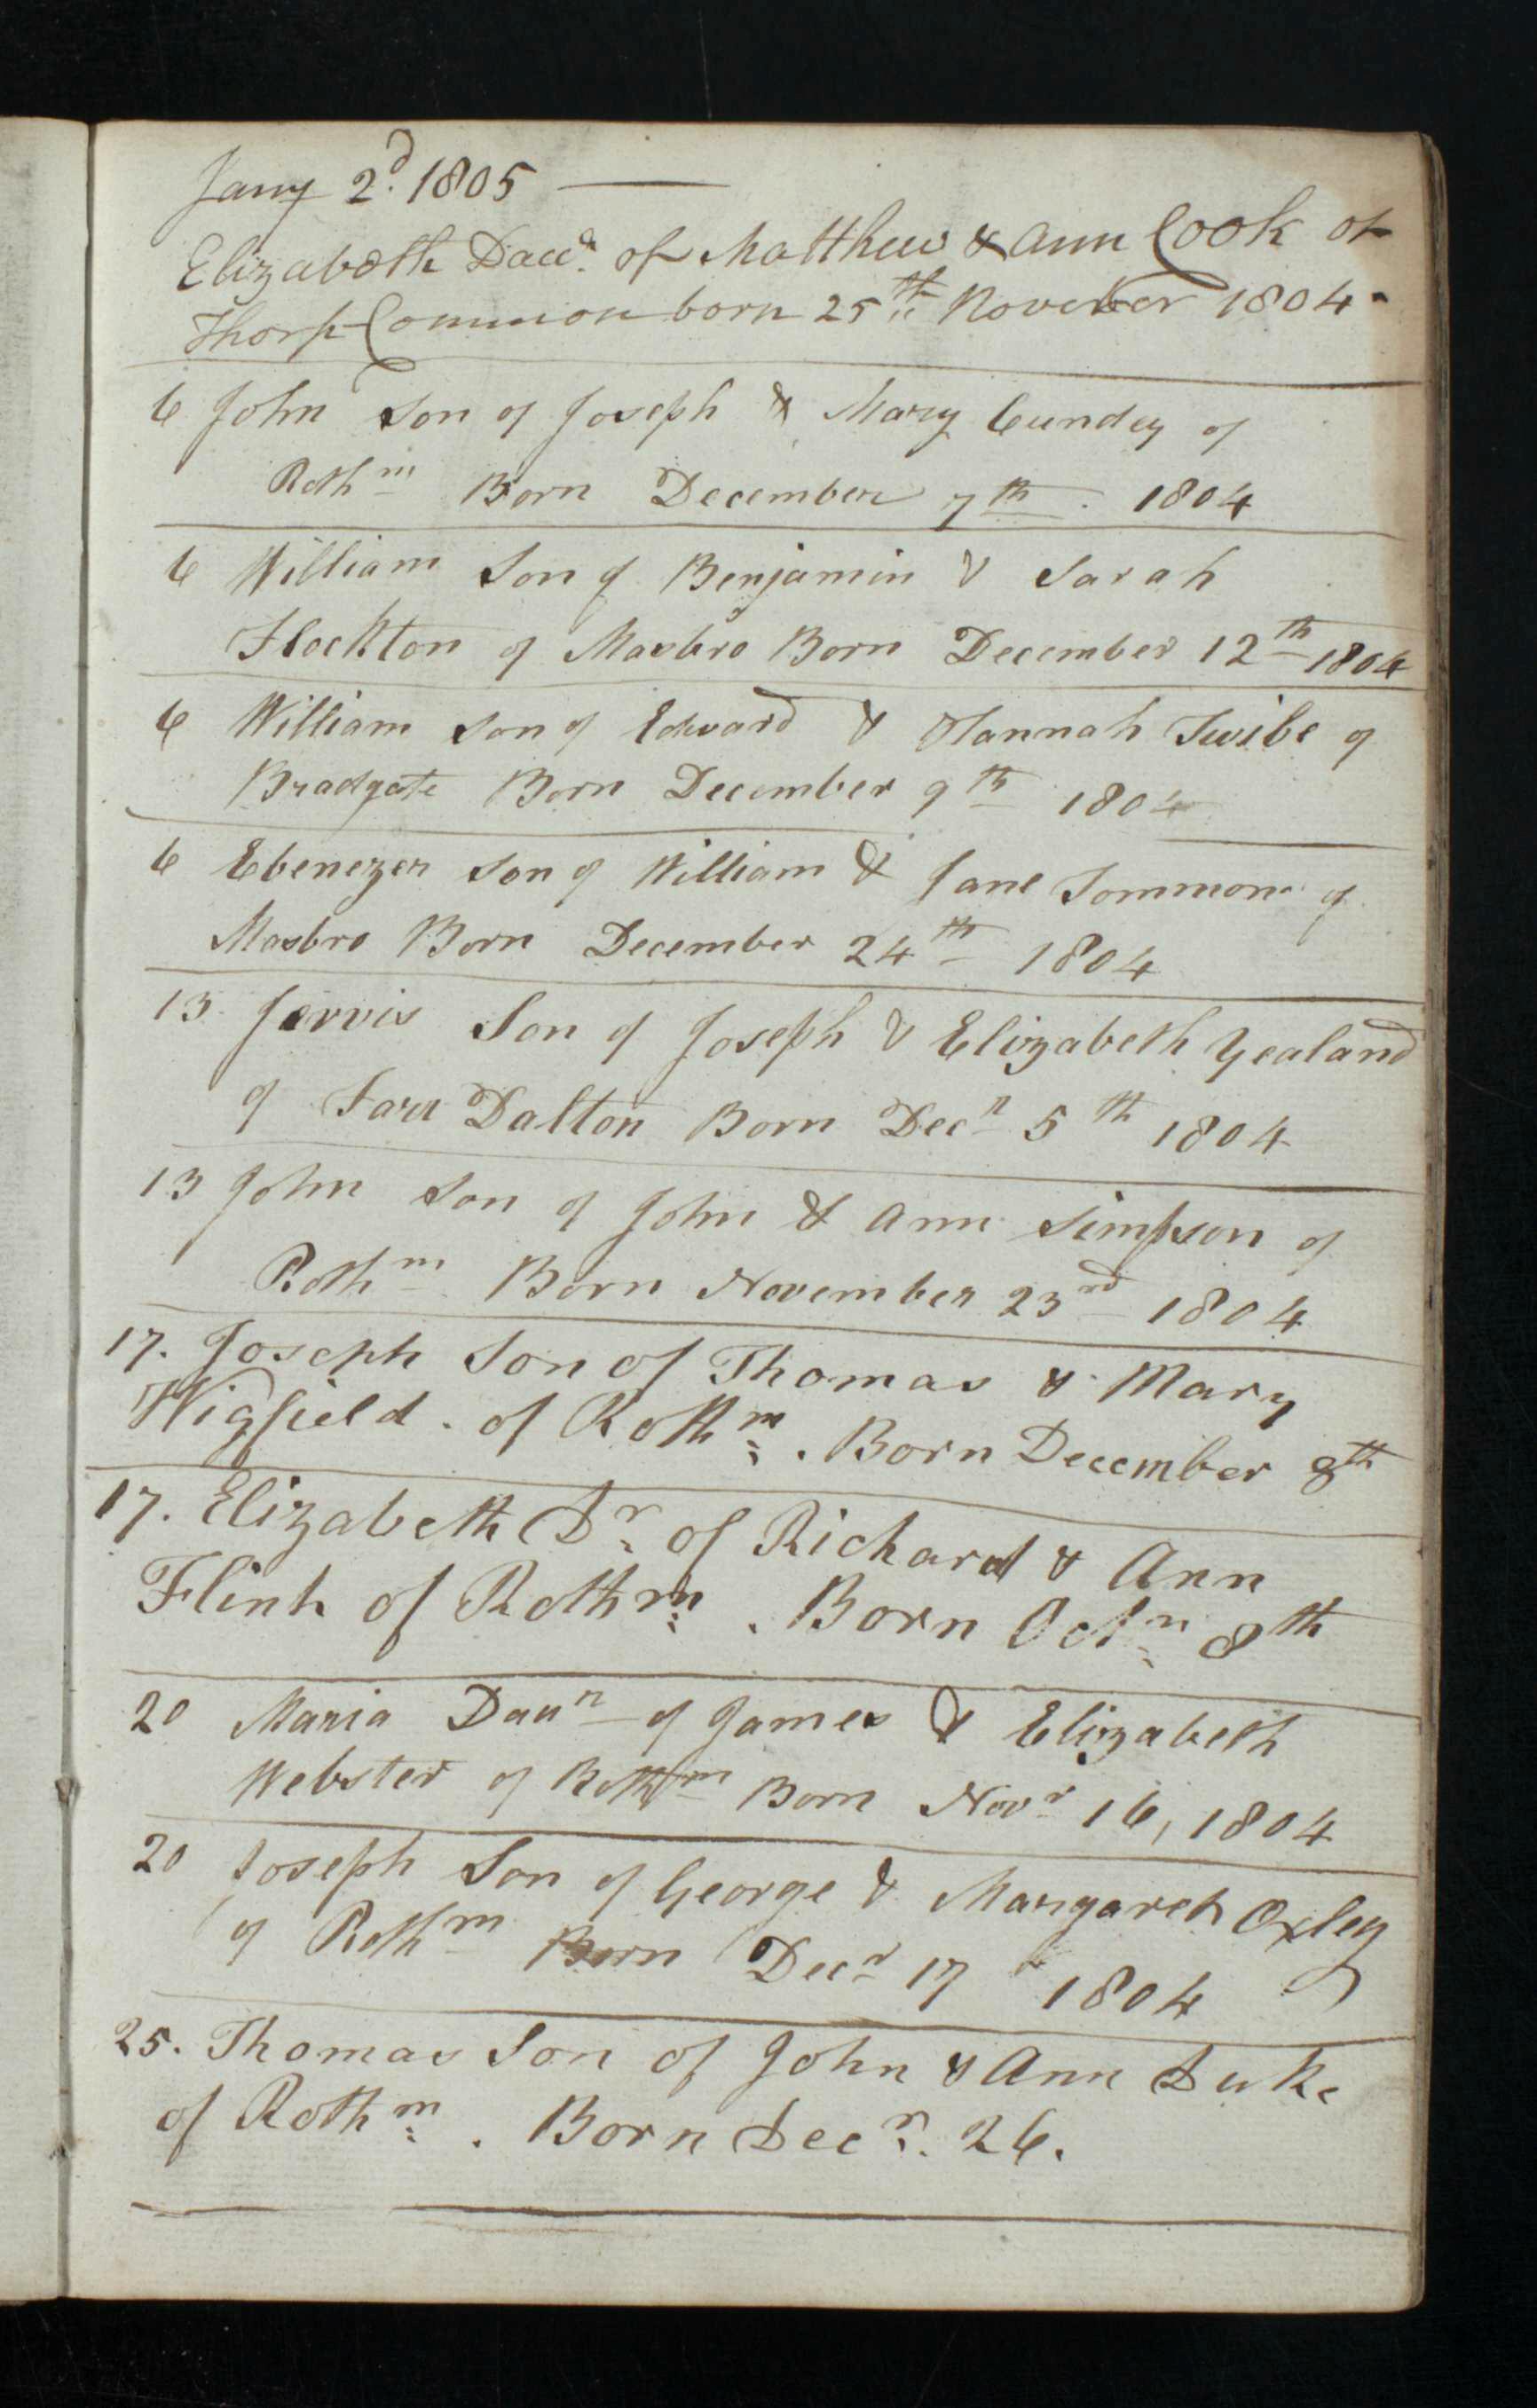 Jany 2d. 1805
Elizabeth Daur. of Matthew & Ann Cook of
Thorp Common born 25th November 1804.
6 John Son of Joseph & Mary Cundey of
Rothm Born December 7th. 1804
6 William Son of Benjamin & Sarah
Flockton of Masbro Born December 12th 1804
6 William Son of Edward & Hannah Twibe of
Bradgate Born December 9th 1804
6 Ebenezer Son of William & Jane of
Masbro Born December 24th 1804
13 Jarvis Son of Joseph & Elizabeth Yealand
of Dalton Born Decr 5th 1804
13 John Son of John & Ann Simpson of
Rothm Born November 23rd 1804
17. Joseph Son of Thomas & Mary
Wigfield. of Rothm. Born December 8th
17. Elizabeth Dr. of Richard & Ann
Flint of Rothm. Born Octr. 8th
20 Maria Daur of James & Elizabeth
Webster of Rothm Born Novr 16, 1804
20 Joseph Son of George & Margaret Oxley
of Rothm Born Decr 17 1804
25. Thomas Son of John & Ann Duke
of Rothm. Born Decr. 26.